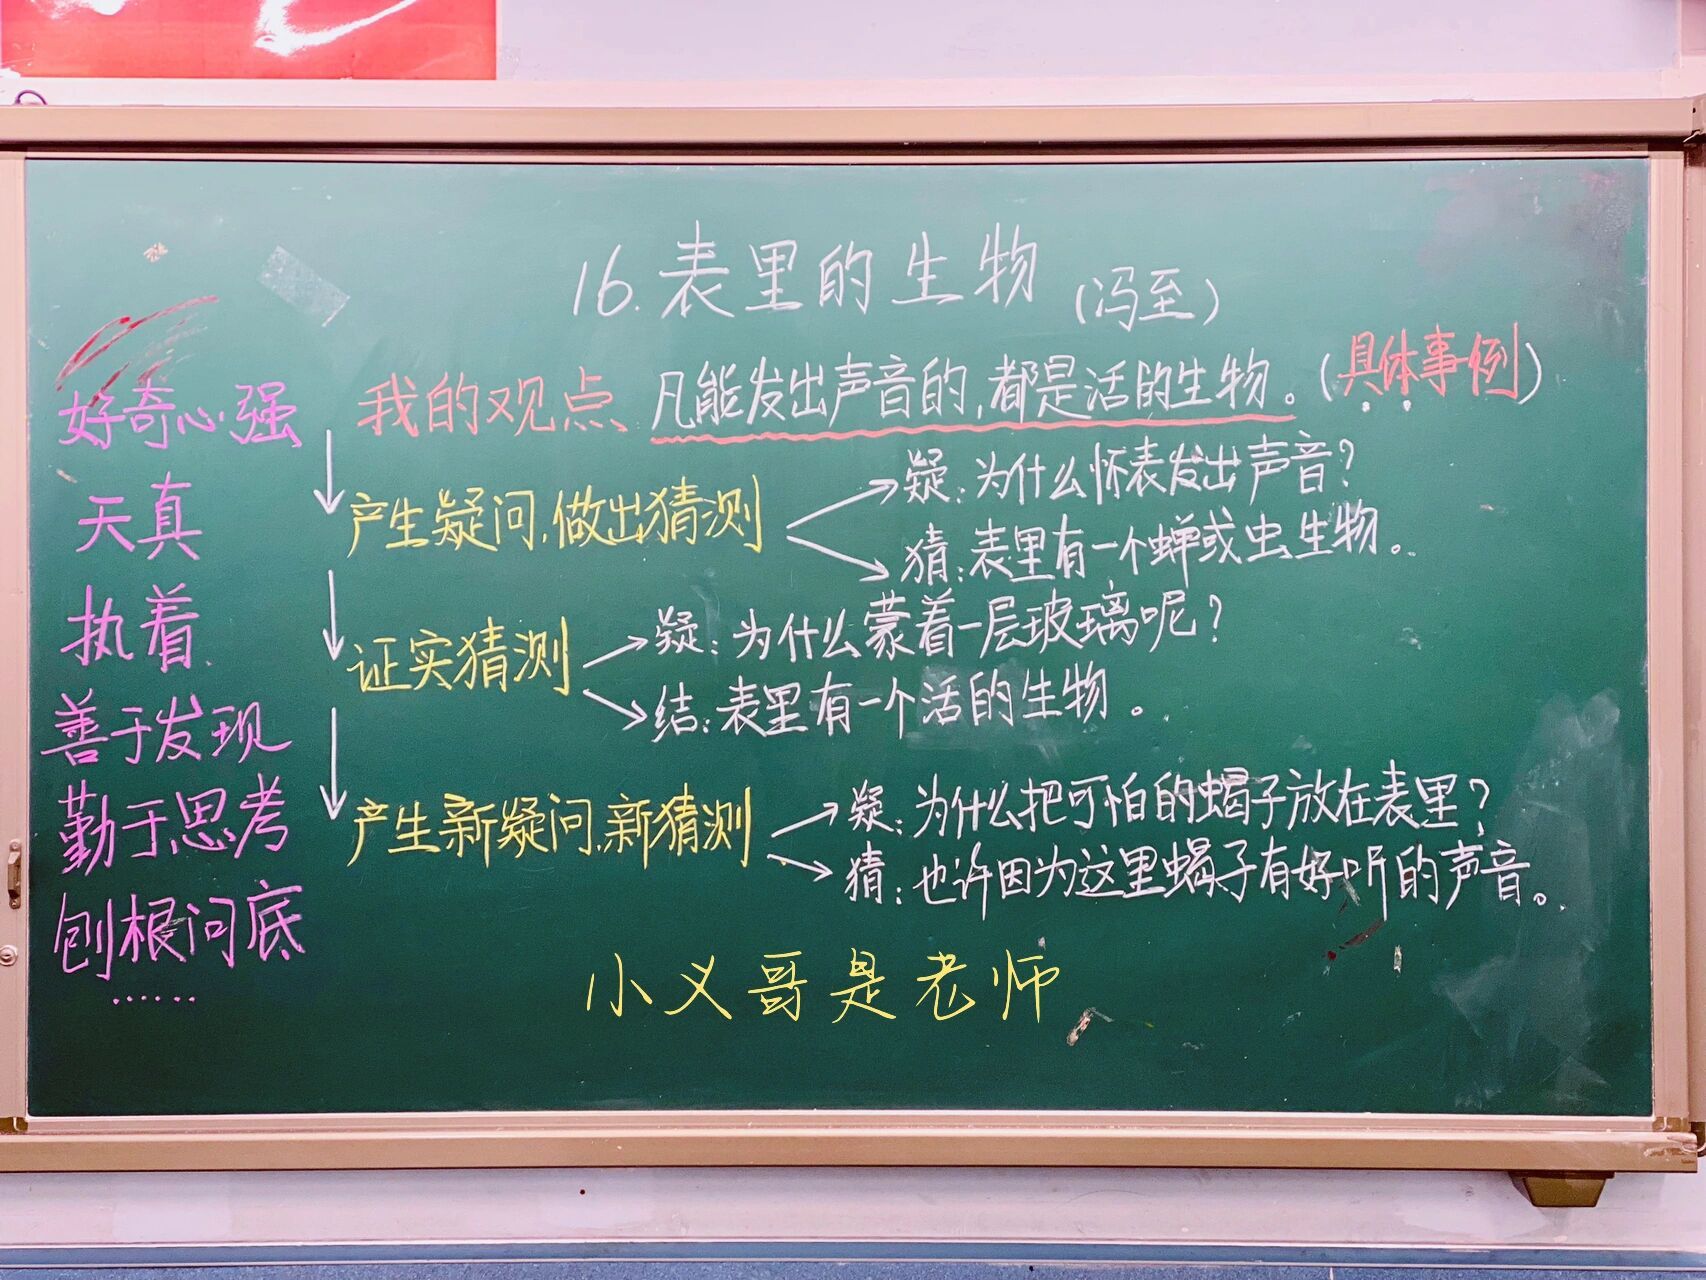 16.表里的生物(冯至)
我的观点 凡能发出声音的,都是活的生物。(具体事例)
产生疑问,做出猜测
疑:为什么怀表发出声音?
猜:表里有一个蝉或虫生物。
证实猜测
疑:为什么蒙着一层玻璃呢?
结:表里有一个活的生物。
产生新疑问,新猜测
疑:为什么把可怕的蝎子放在表里?
猜:也许因为这里蝎子有好听的声音。
好奇心强
天真
执着
善于发现
勤于思考
刨根问底
……
小义哥是老师